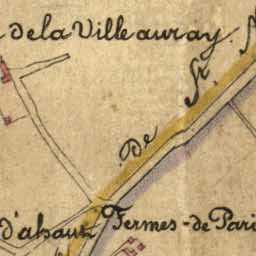 de la Ville auray.
De St. A
d'ahaut
Fermes-de Pari